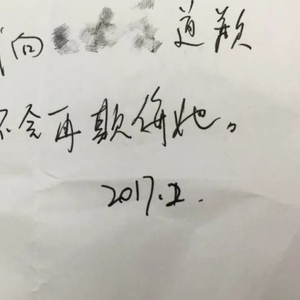 向 道歉
不会再欺侮她。
2017.2.